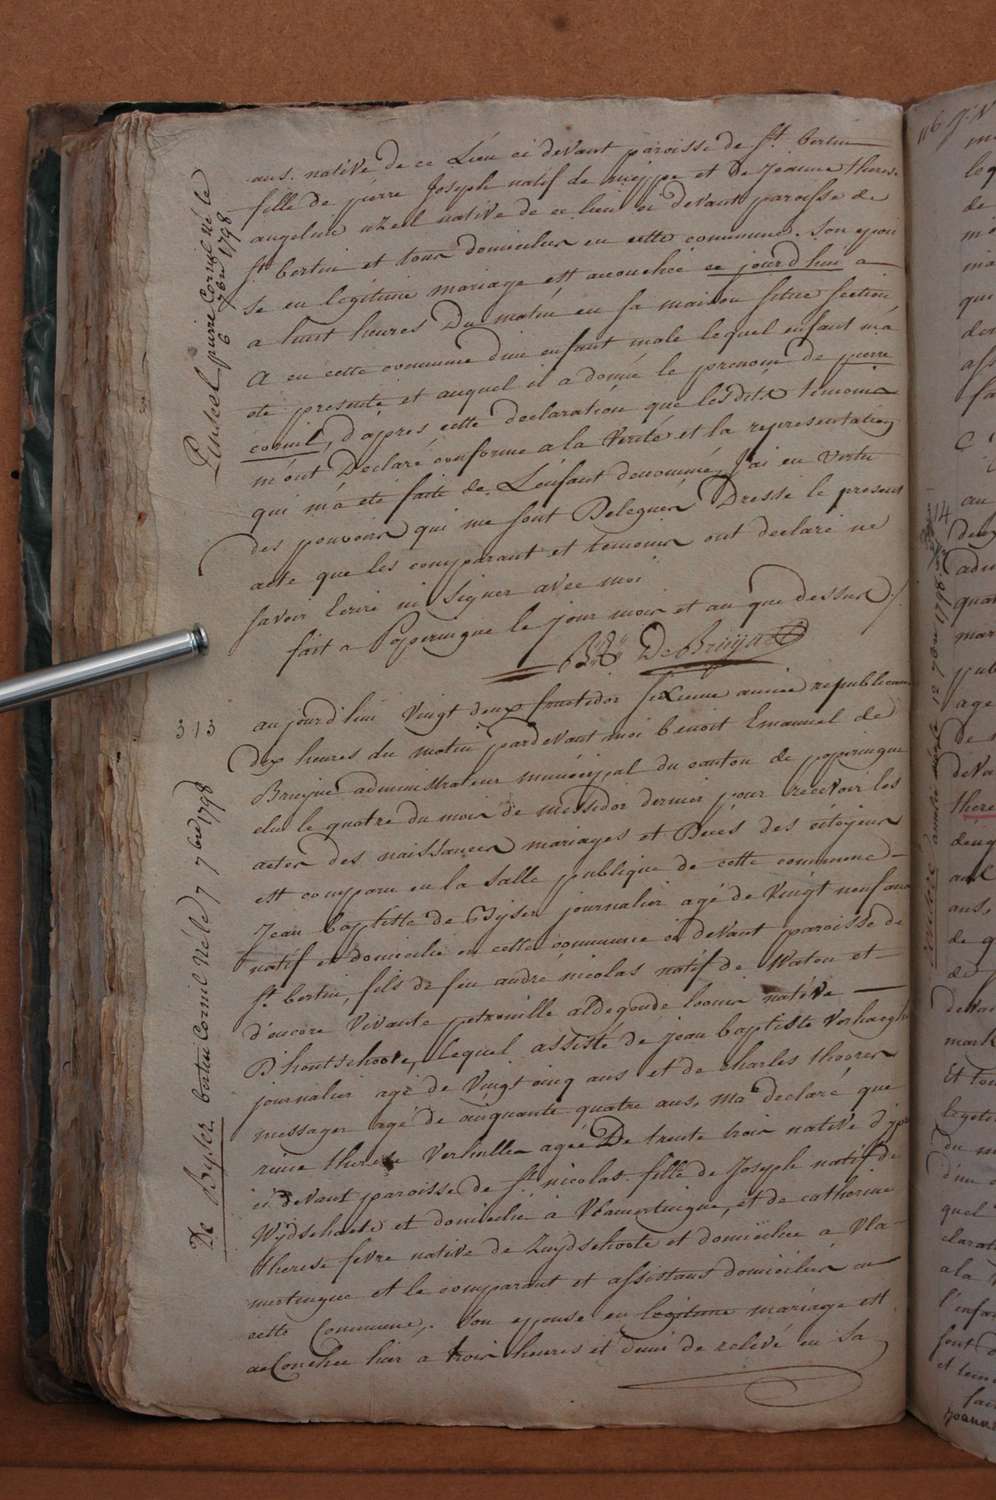 ans. native de ce Lieu ci devant paroisse de St. bertin
fille de pierre Joseph natif de nieppe et de Jeanne theres.
angeline uzeel native de ce lieu ci devant paroisse de
St bertin et tous domiciliés en cette commune. Son epou
se en légitime mariage est accouchée ce jourd'hui a
a huit heures Du matin en sa maison situé section
A en cette commune d'un enfant male lequel enfant m'a
eté presenté et auquel il a donné le prenom de pierre
cornil, d'après cette declaration que lesdits temoins
m'ont Déclaré conforme a la Verité et la representation
qui m'a eté faite de L'enfant denommé, J'ai en vertu
des pouvoirs qui me sont Delegués Dressé le present
acte que les comparant et temoins ont declaré ne
savoir Ecrire ni Signer avec moi
fait a Poperingue le jour mois et an que dessus
De Bruyne
Pinseel pierre Cornil Né le
6 7bre 1798
313
aujourd'hui Vingt deux fructidor Sixieme année republicaine
Dix heures du matin pardevant moi benoit Emanuel de
Bruyne administrateur municipal du canton de poperingue
elu le quatre du mois de messidor dernier pour recevoir les
actes des naissances mariages et Decés des citoyens
est comparu en la Salle publique de cette commune
Jean baptiste de Byser journalier agé de Vingt neuf ans
natif et domicilié en cette commune ci devant paroisse de
St. bertin, fils de feu andré nicolas natif de Watou et
d'encore Vivante petronille aldegonde native
D'hontschoote, lequel assisté de jean baptiste Verhaeghe
journalier agé de Vingt cinq ans et de Charles thooris
messager agé de cinquante quatre ans, m'a declaré que
reine therese Verhille agée De trente trois native d'ypr
ci devant paroisse de St. nicolas fille de Joseph natif de
Wydschoete et domicilié à Vlamertingue, et de catherine
therese fevre native de Zuydschoote et domiciliée a Vla
mertingue et le comparant et assistans domiciliés en
cette Commune, Son epouse en légitime mariage est
acConchée hier a trois heures et demie de relévé en Sa
De Byser bertin Cornil Né le 7 7bre 1798